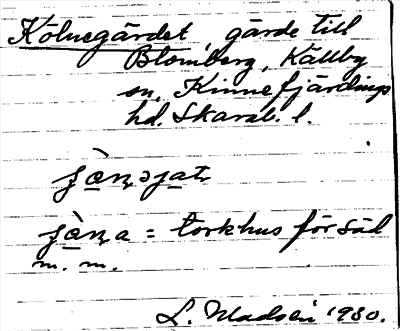 Kölnegärdet, gärde till
Blomberg, Källby
sn, Kinnefjärdings
hd. Skarab. l.
= torkhus för säd
m. m.
L. Madsén 1930.